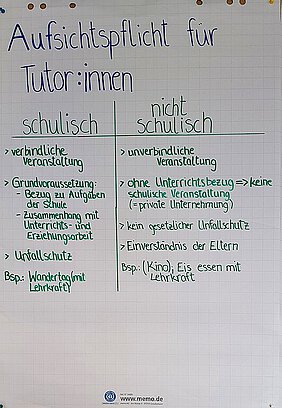 Aufsichtspflicht für
Tutor:innen
schulisch
> verbindliche
Veranstaltung
> Grundvoraussetzung:
- Bezug zu Aufgaben
der Schule
- Zusammenhang mit
Unterrichts- und
Erziehungsarbeit
> Unfallschutz
Bsp.: Wandertag (mit
Lehrkraft)
nicht
schulisch
> unverbindliche
Veranstaltung
> ohne Unterrichtsbezug => keine
schulische Veranstaltung
(= private Unternehmung)
> kein gesetzlicher Unfallschutz
> Einverständnis der Eltern
Bsp.: (Kino), Eis essen mit
Lehrkraft
www.memo.de